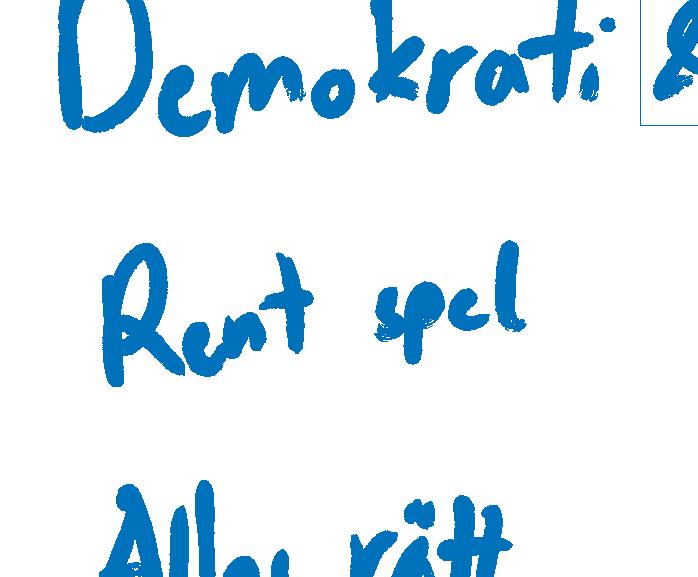 Demokrati &
Rent spel
Allas rätt